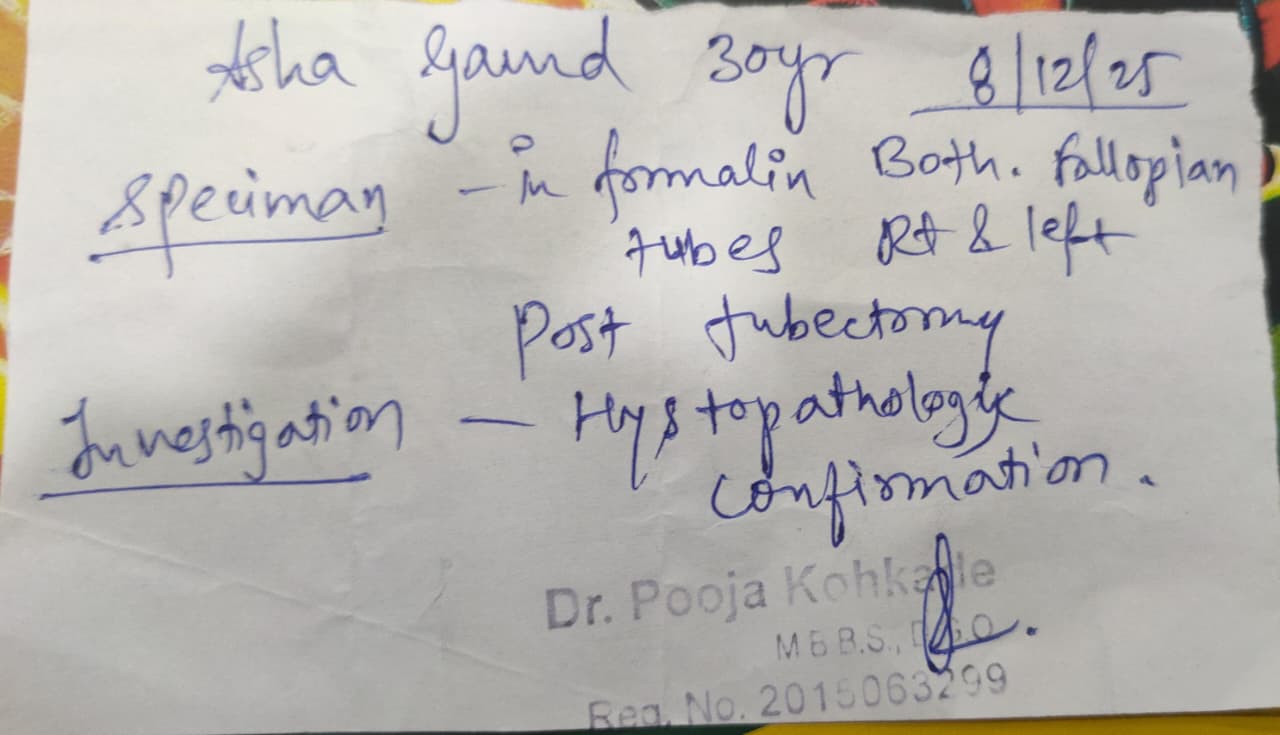 Asha Gaund 30yr 8/12/25
Speciman - in formalin Both. fallopian
tubes Rt & left
Post tubectomy
Investigation - Hystopathologic
confirmation.
Dr. Pooja
M.B.B.S.,
Reg. No.